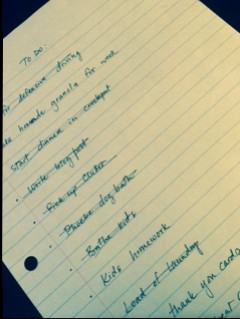 TO DO:
for defensive driving
homemade granola for week
start dinner in crockpot
write blog post
Pick up
dog bath
Bathe kids
Kids homework
Load of laundry
thank you cards